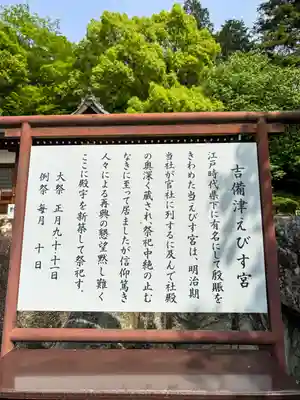 吉備津えびす宮
江戸時代県下に有名にして殷賑を
きわめた当えびす宮は、明治期
当社が官社に列するに及んで社殿
の奥深く蔵され、祭祀中絶の止む
なきに至って居ましたが信仰篤き
人々による再興の懇望黙し難く
ここに殿宇を新築して祭祀す。
大祭 正月九十十一日
例祭 毎月 十日